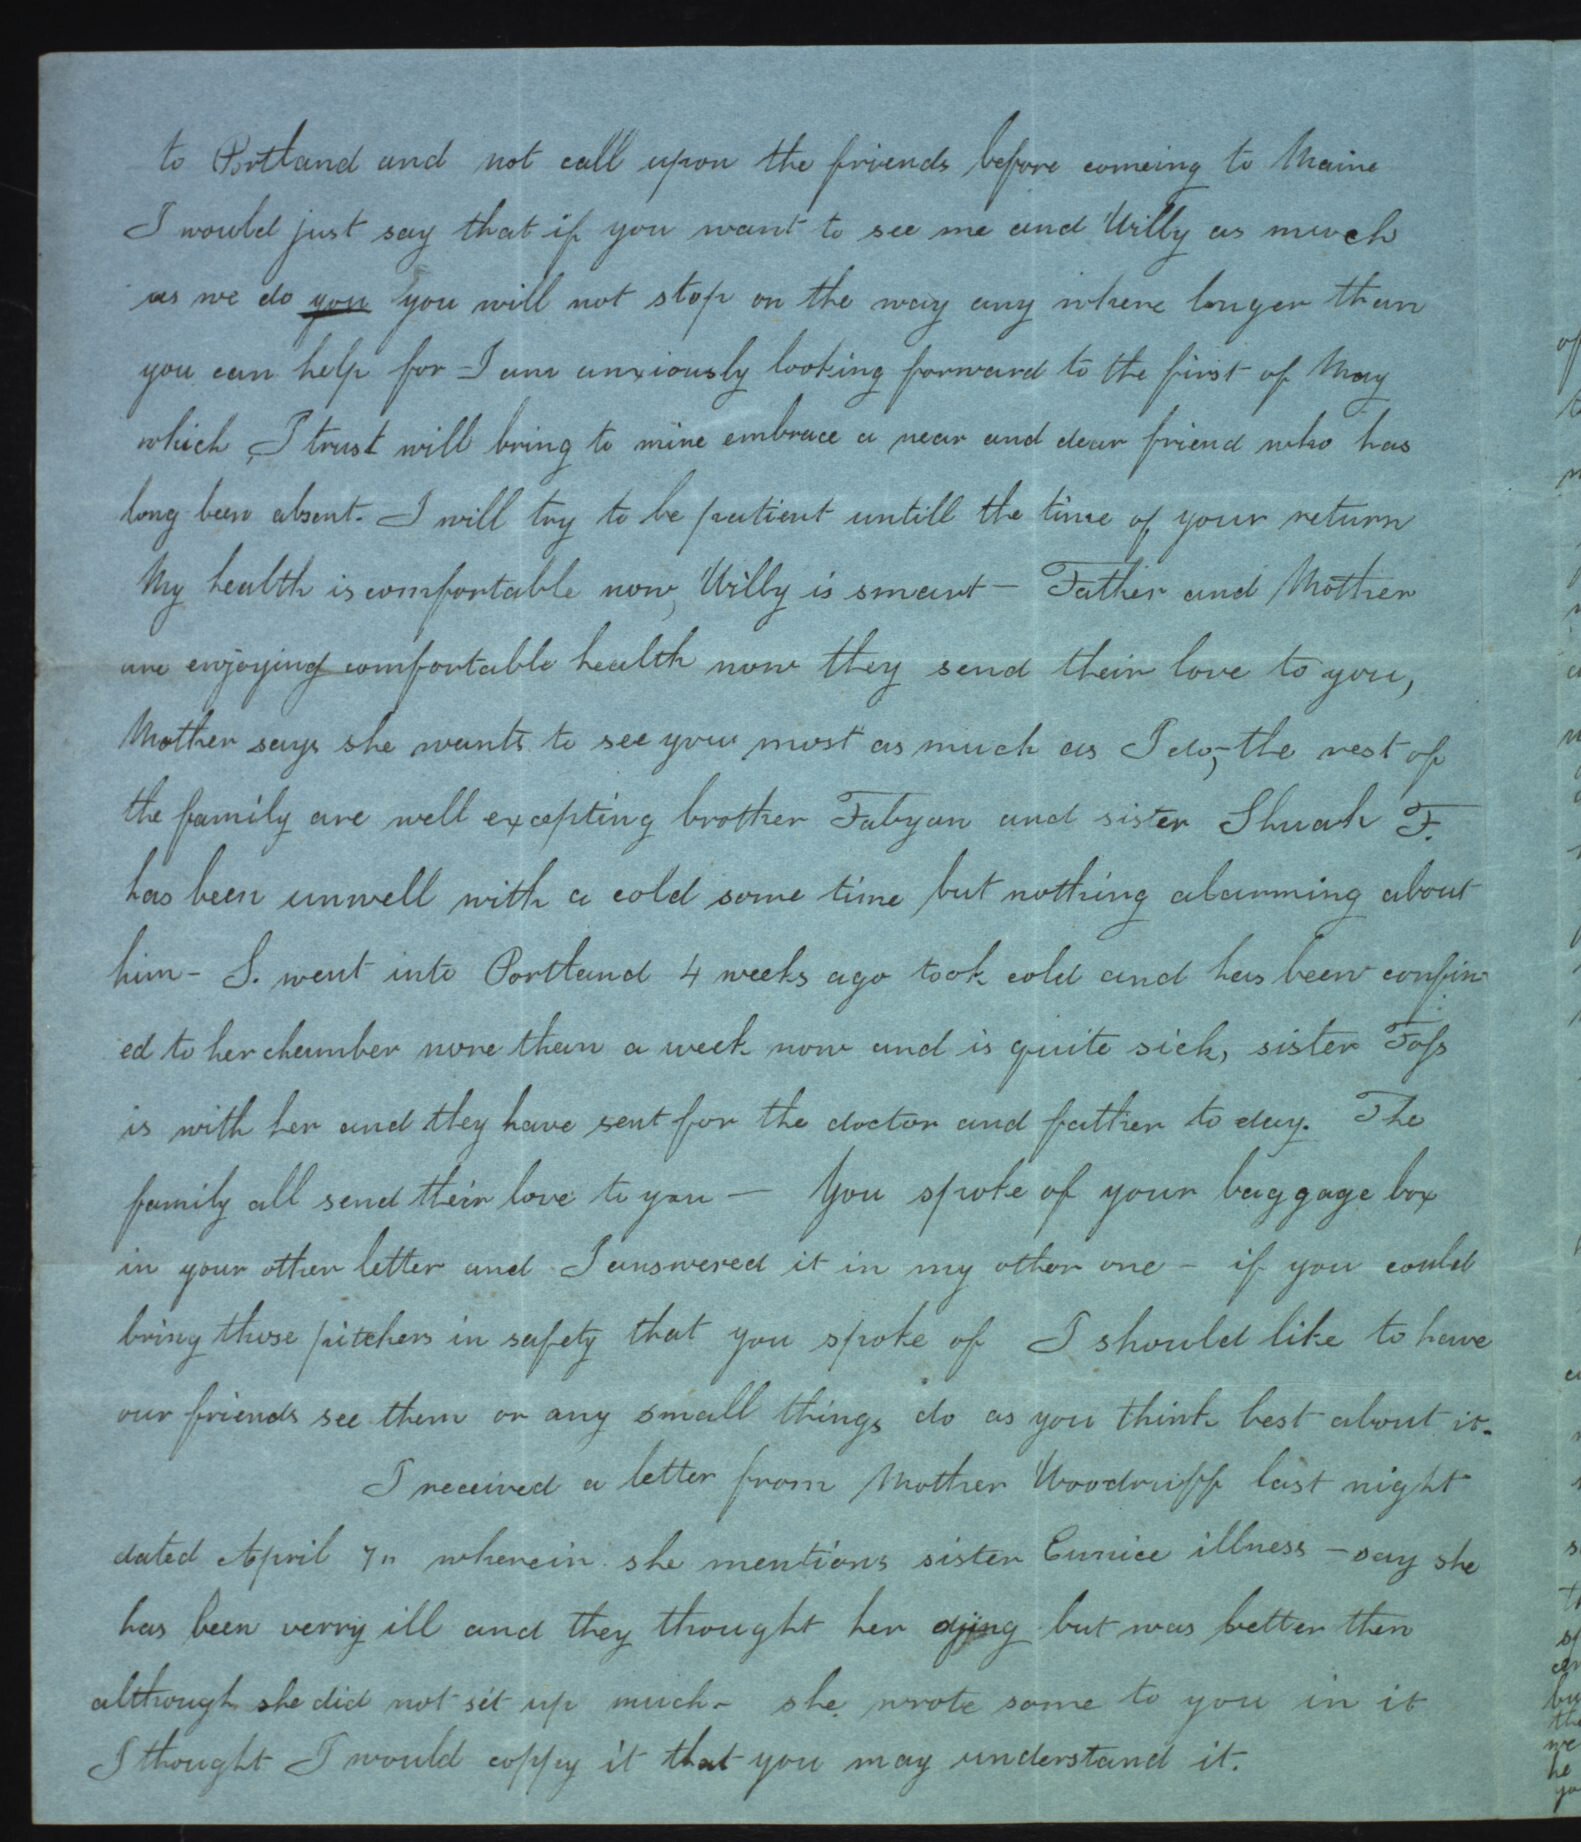 to Portland and not call upon the friends before comeing to Maine
I would just say that if you want to see me and Willy as much
as we do you you will not stop on the way any where longer than
you can help for I am anxiously looking forward to the first of May
which I trust will bring to mine embrace a near and dear friend who has
long been absent. I will try to be patient untill the time of your return
My health is comfortable now, Willy is smart - Father and Mother
are enjoying comfortable health now they send their love to you,
Mother says she wants to see you most as much as I do,- the rest of
the family are well excepting brother Fabyan and sister Shuah F.
has been unwell with a cold some time but nothing alarming about
him - S. went into Portland 4 weeks ago took cold and has been confin
ed to her chamber more than a week now and is quite sick, sister Foss
is with her and they have sent for the doctor and father to day. The
family all send their love to you — You spoke of your baggage box
in your other letter and I answered it in my other one - if you could
bring those pitchers in safety that you spoke of I should like to have
our friends see them or any small things do as you think best about it.
I received a letter from Mother Woodruff last night
dated April 7" wherein she mentions sister Eunice illness - say she
has been verry ill and they thought her dying but was better then
although she did not sit up much - she wrote some to you in it
I thought I would coppy it that you may understand it.